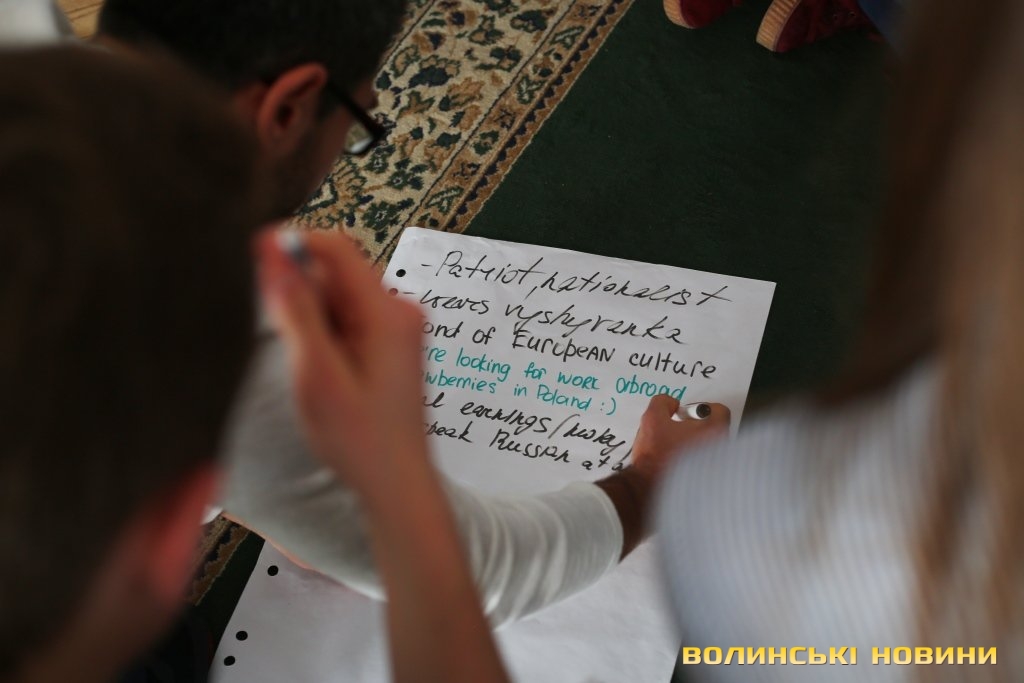 - Patriot, nationalist
- wears vyshyvanka
ond of European culture
're looking for work abroad
wberries in Poland :)
al earnings/
speak Russian at a
ВОЛИНСЬКІ НОВИНИ